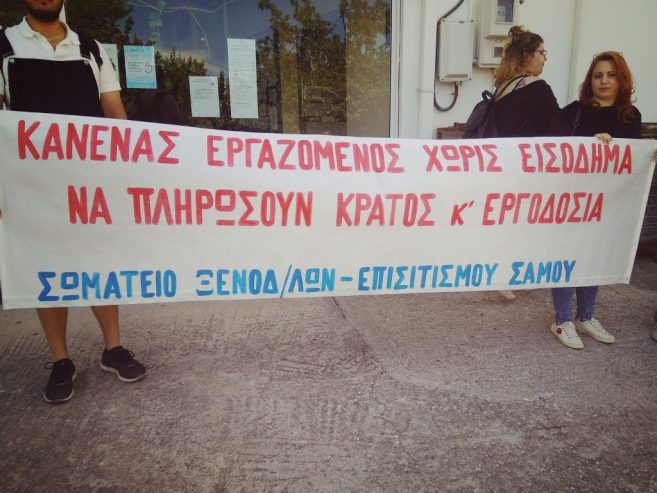 ΚΑΝΕΝΑΣ ΕΡΓΑΖΟΜΕΝΟΣ ΧΩΡΙΣ ΕΙΣΟΔΗΜΑ
ΝΑ ΠΛΗΡΩΣΟΥΝ ΚΡΑΤΟΣ Κ' ΕΡΓΟΔΟΣΙΑ
ΣΩΜΑΤΕΙΟ ΞΕΝΟΔ/ΛΩΝ-ΕΠΙΣΙΤΙΣΜΟΥ ΣΑΜΟΥ